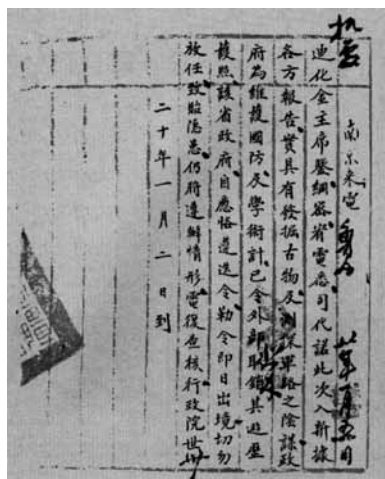 机要
南京来電 廿年一月五日
迪化金主席鑒綱密宥電悉司代諾此次入新據
各方報告實具有發掘古物及測探軍路之陰謀政
府為維護國防及學術計已令外部取銷其遊歷
護照該省政府自應恪遵迭令勒令即日出境切勿
放任致貽隱患仍將遵辦情形電復查核行政院世
二十年一月二日到